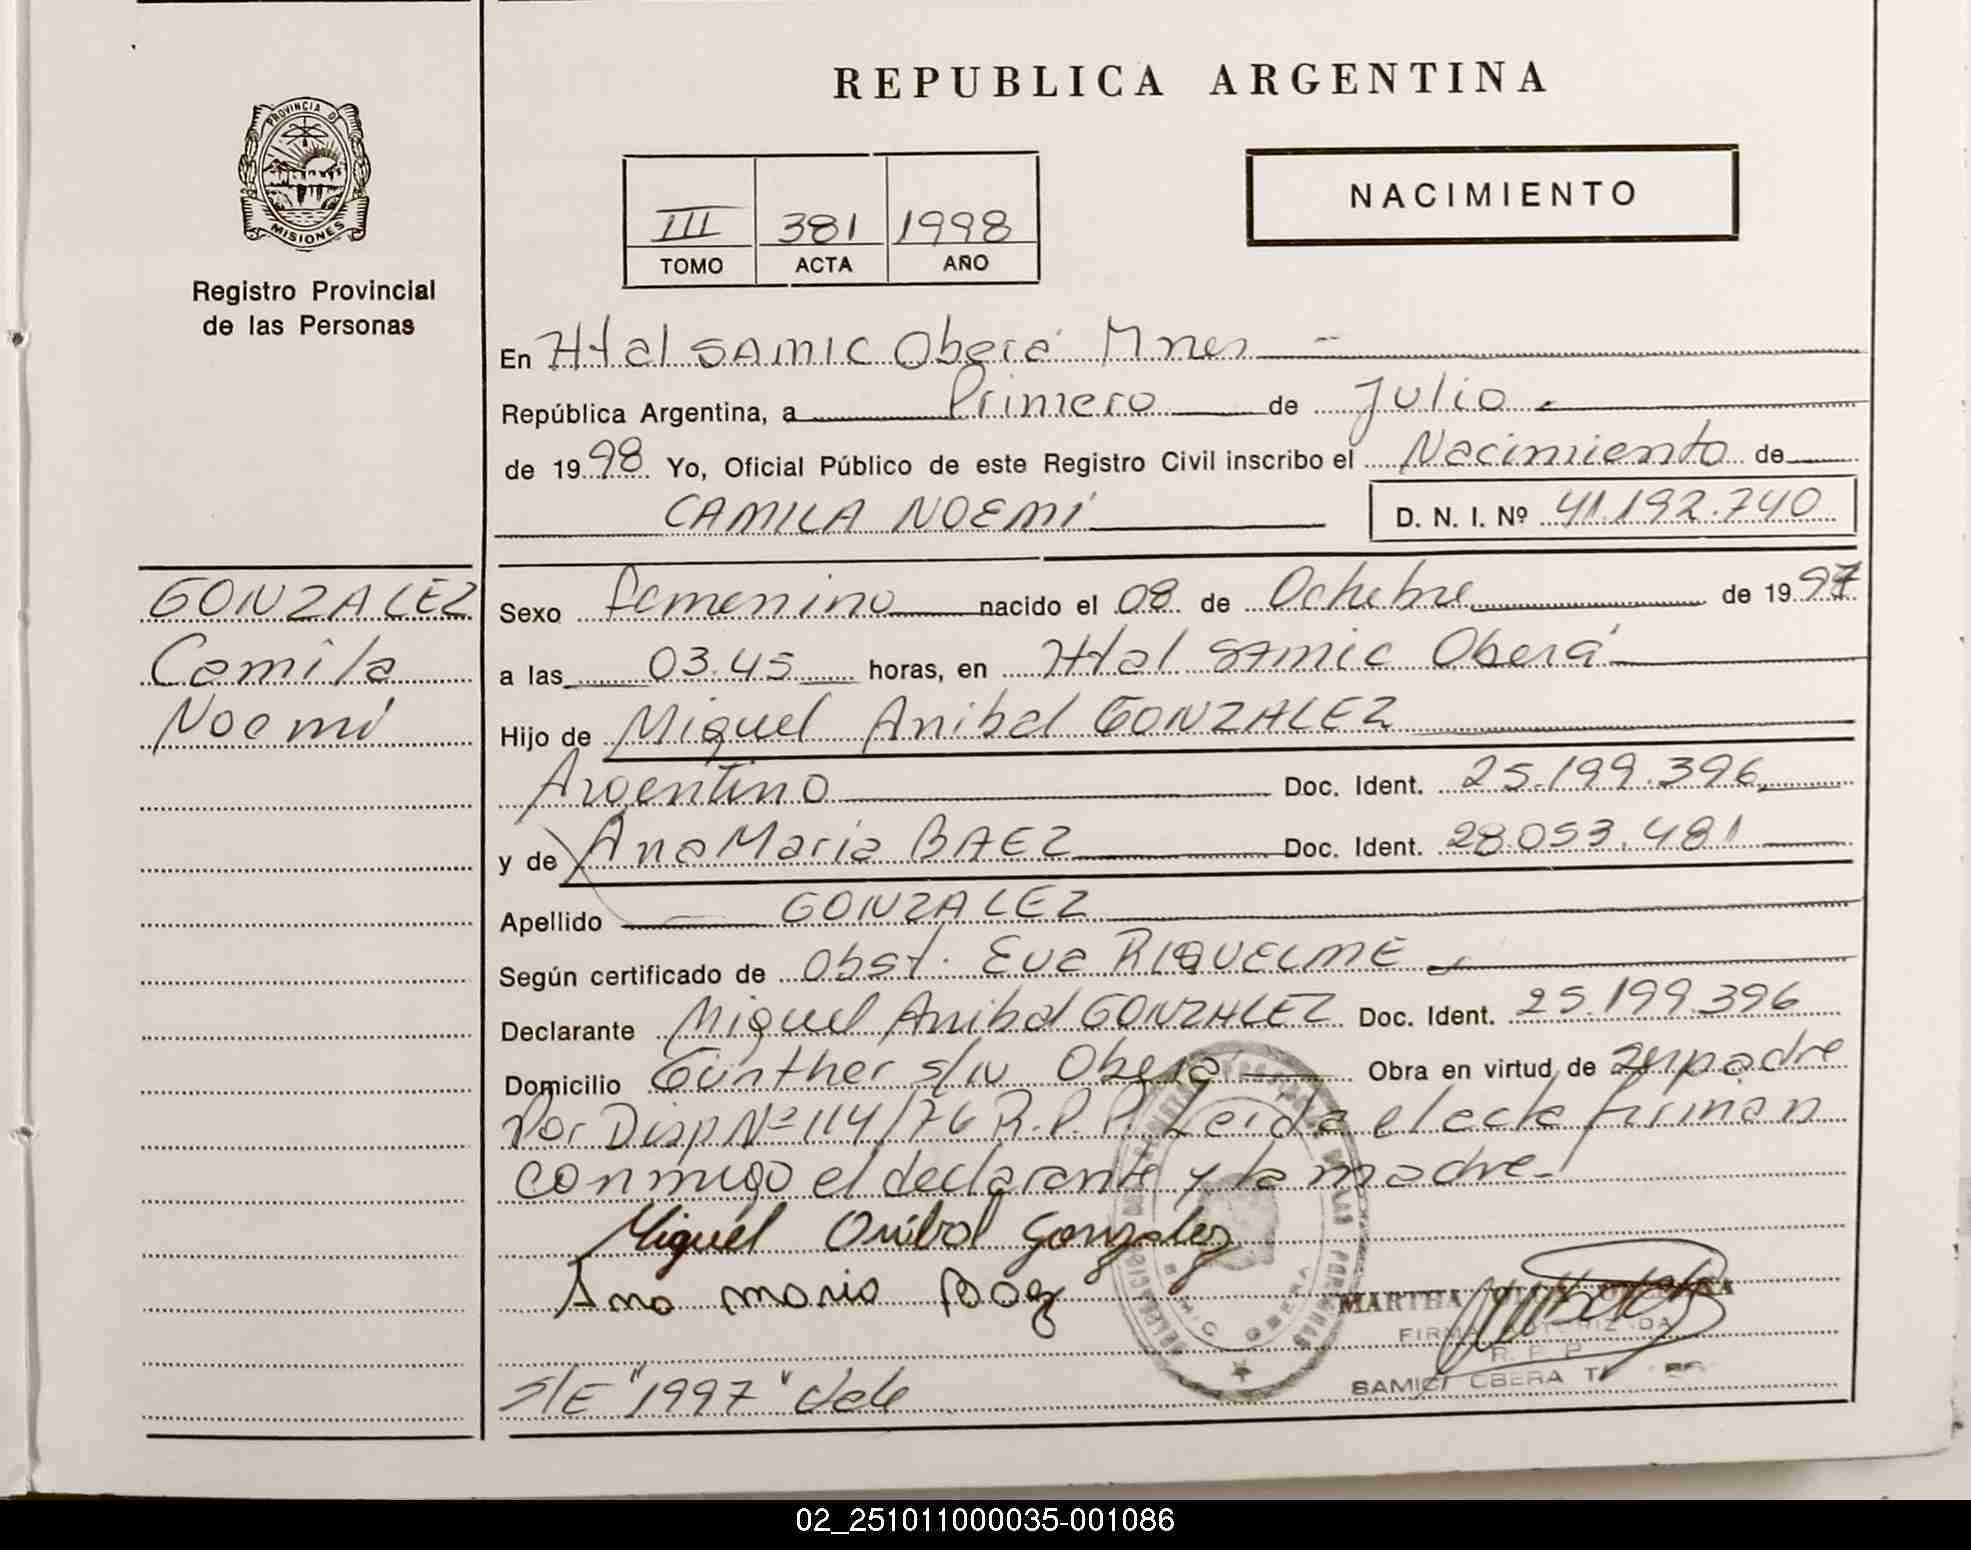 PROVINCIA D
MISIONES
Registro Provincial
de las Personas
GONZALEZ
Camila
Noemí
REPUBLICA ARGENTINA
NACIMIENTO
III 381 1998
TOMO ACTA AÑO
En Htal SAMIC Oberá Mnes
República Argentina, a Primero de Julio
de 1998 Yo, Oficial Público de este Registro Civil inscribo el Nacimiento de
CAMILA NOEMí D. N. I. Nº 41.192.740
Sexo femenino nacido el 08 de Octubre de 1997
a las 03.45 horas, en Htal SAMIC Oberá
Hijo de Miguel Anibal GONZALEZ
Argentino Doc. Ident. 25.199.396
y de Ana Maria BAEZ Doc. Ident. 28.053.481
Apellido GONZALEZ
Según certificado de Obst. Eva RIQUELME
Declarante Miguel Anibal GONZALEZ Doc. Ident. 25.199.396
Domicilio Günther s/N Oberá Obra en virtud de ser padre
Por Disp Nº 114/76 R.P.P. Leída el acta firman
conmigo el declarante y la madre-
Miguel Anibal Gonzalez
Ana maria Baez
MARTHA
FIRMA AUTORIZADA
R. P. P.
SAMIC OBERA
S/E "1997" vale
02_251011000035-001086